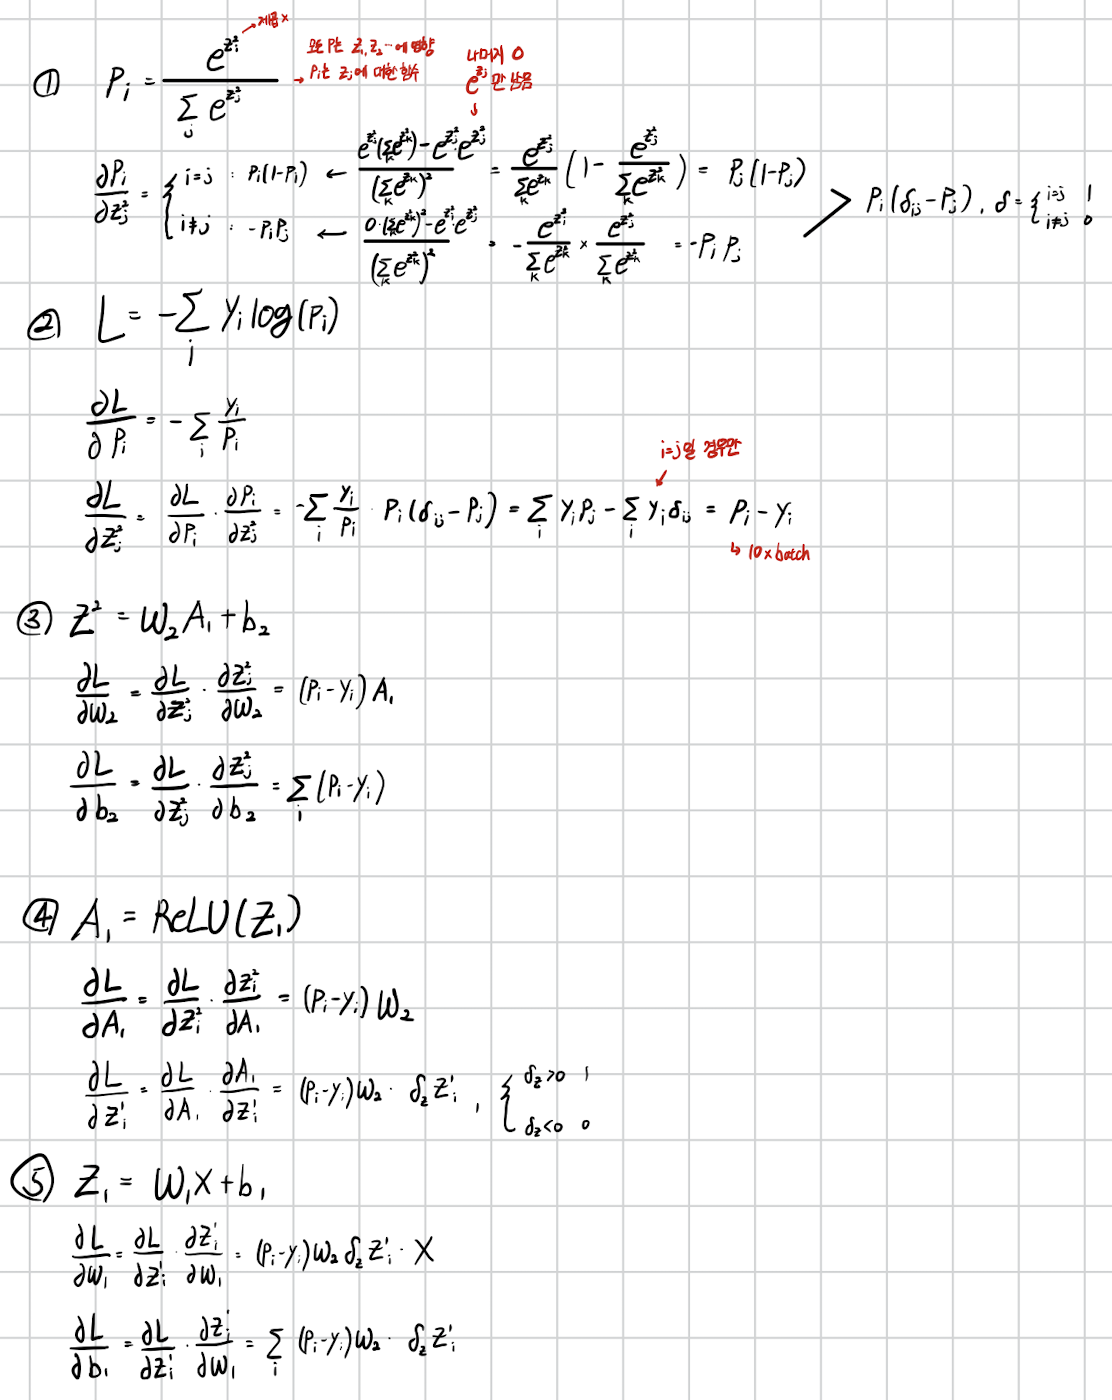 제곱 x
① P_i = e^{z_i^2} / Σ_j e^{z_j^2}
모든 P는 z_1, z_2 … 에 영향
→ P_i는 z_j에 대한 함수
나머지 0
e^{z_j} 만 남음
∂P_i/∂z_j^2 = { i=j : P_i(1-P_i) ← (e^{z_j^2}(Σ_k e^{z_k^2}) - e^{z_j^2} e^{z_j^2}) / (Σ_k e^{z_k^2})^2 = e^{z_j^2}/Σ_k e^{z_k} (1 - e^{z_j^2}/Σ_k e^{z_k^2}) = P_j(1-P_j)
i≠j : -P_i P_j ← (0·(Σ_k e^{z_k^2})^2 - e^{z_i^2} e^{z_j^2}) / (Σ_k e^{z_k^2})^2 = - e^{z_i^2}/Σ_k e^{z_k^2} × e^{z_j^2}/Σ_k e^{z_k^2} = -P_i P_j
> P_i(δ_ij - P_j), δ = { i=j 1
i≠j 0
② L = -Σ_i y_i log(P_i)
∂L/∂P_i = -Σ_i y_i/P_i
i=j일 경우만
∂L/∂z_j^2 = ∂L/∂P_i · ∂P_i/∂z_j^2 = -Σ_i y_i/P_i · P_i(δ_ij - P_j) = Σ_i y_i P_j - Σ_i y_i δ_ij = P_i - y_i
↳ 10 x batch
③ Z^2 = W_2 A_1 + b_2
∂L/∂W_2 = ∂L/∂z_j^2 · ∂z_j^2/∂W_2 = (P_i - y_i) A_1
∂L/∂b_2 = ∂L/∂z_j^2 · ∂z_j^2/∂b_2 = Σ_i (P_i - y_i)
④ A_1 = ReLU(Z_1)
∂L/∂A_1 = ∂L/∂z_i^2 · ∂z_i^2/∂A_1 = (P_i - y_i) W_2
∂L/∂z_i^1 = ∂L/∂A_1 · ∂A_1/∂z_i^1 = (P_i - y_i) W_2 · δ_z z_i^1 , { δ_z>0 1
δ_z<0 0
⑤ Z_1 = W_1 X + b_1
∂L/∂W_1 = ∂L/∂z_i^1 · ∂z_i^1/∂W_1 = (P_i - y_i) W_2 δ_z z_i^1 · X
∂L/∂b_1 = ∂L/∂z_i^1 · ∂z_i^1/∂W_1 = Σ_i (P_i - y_i) W_2 · δ_z z_i^1